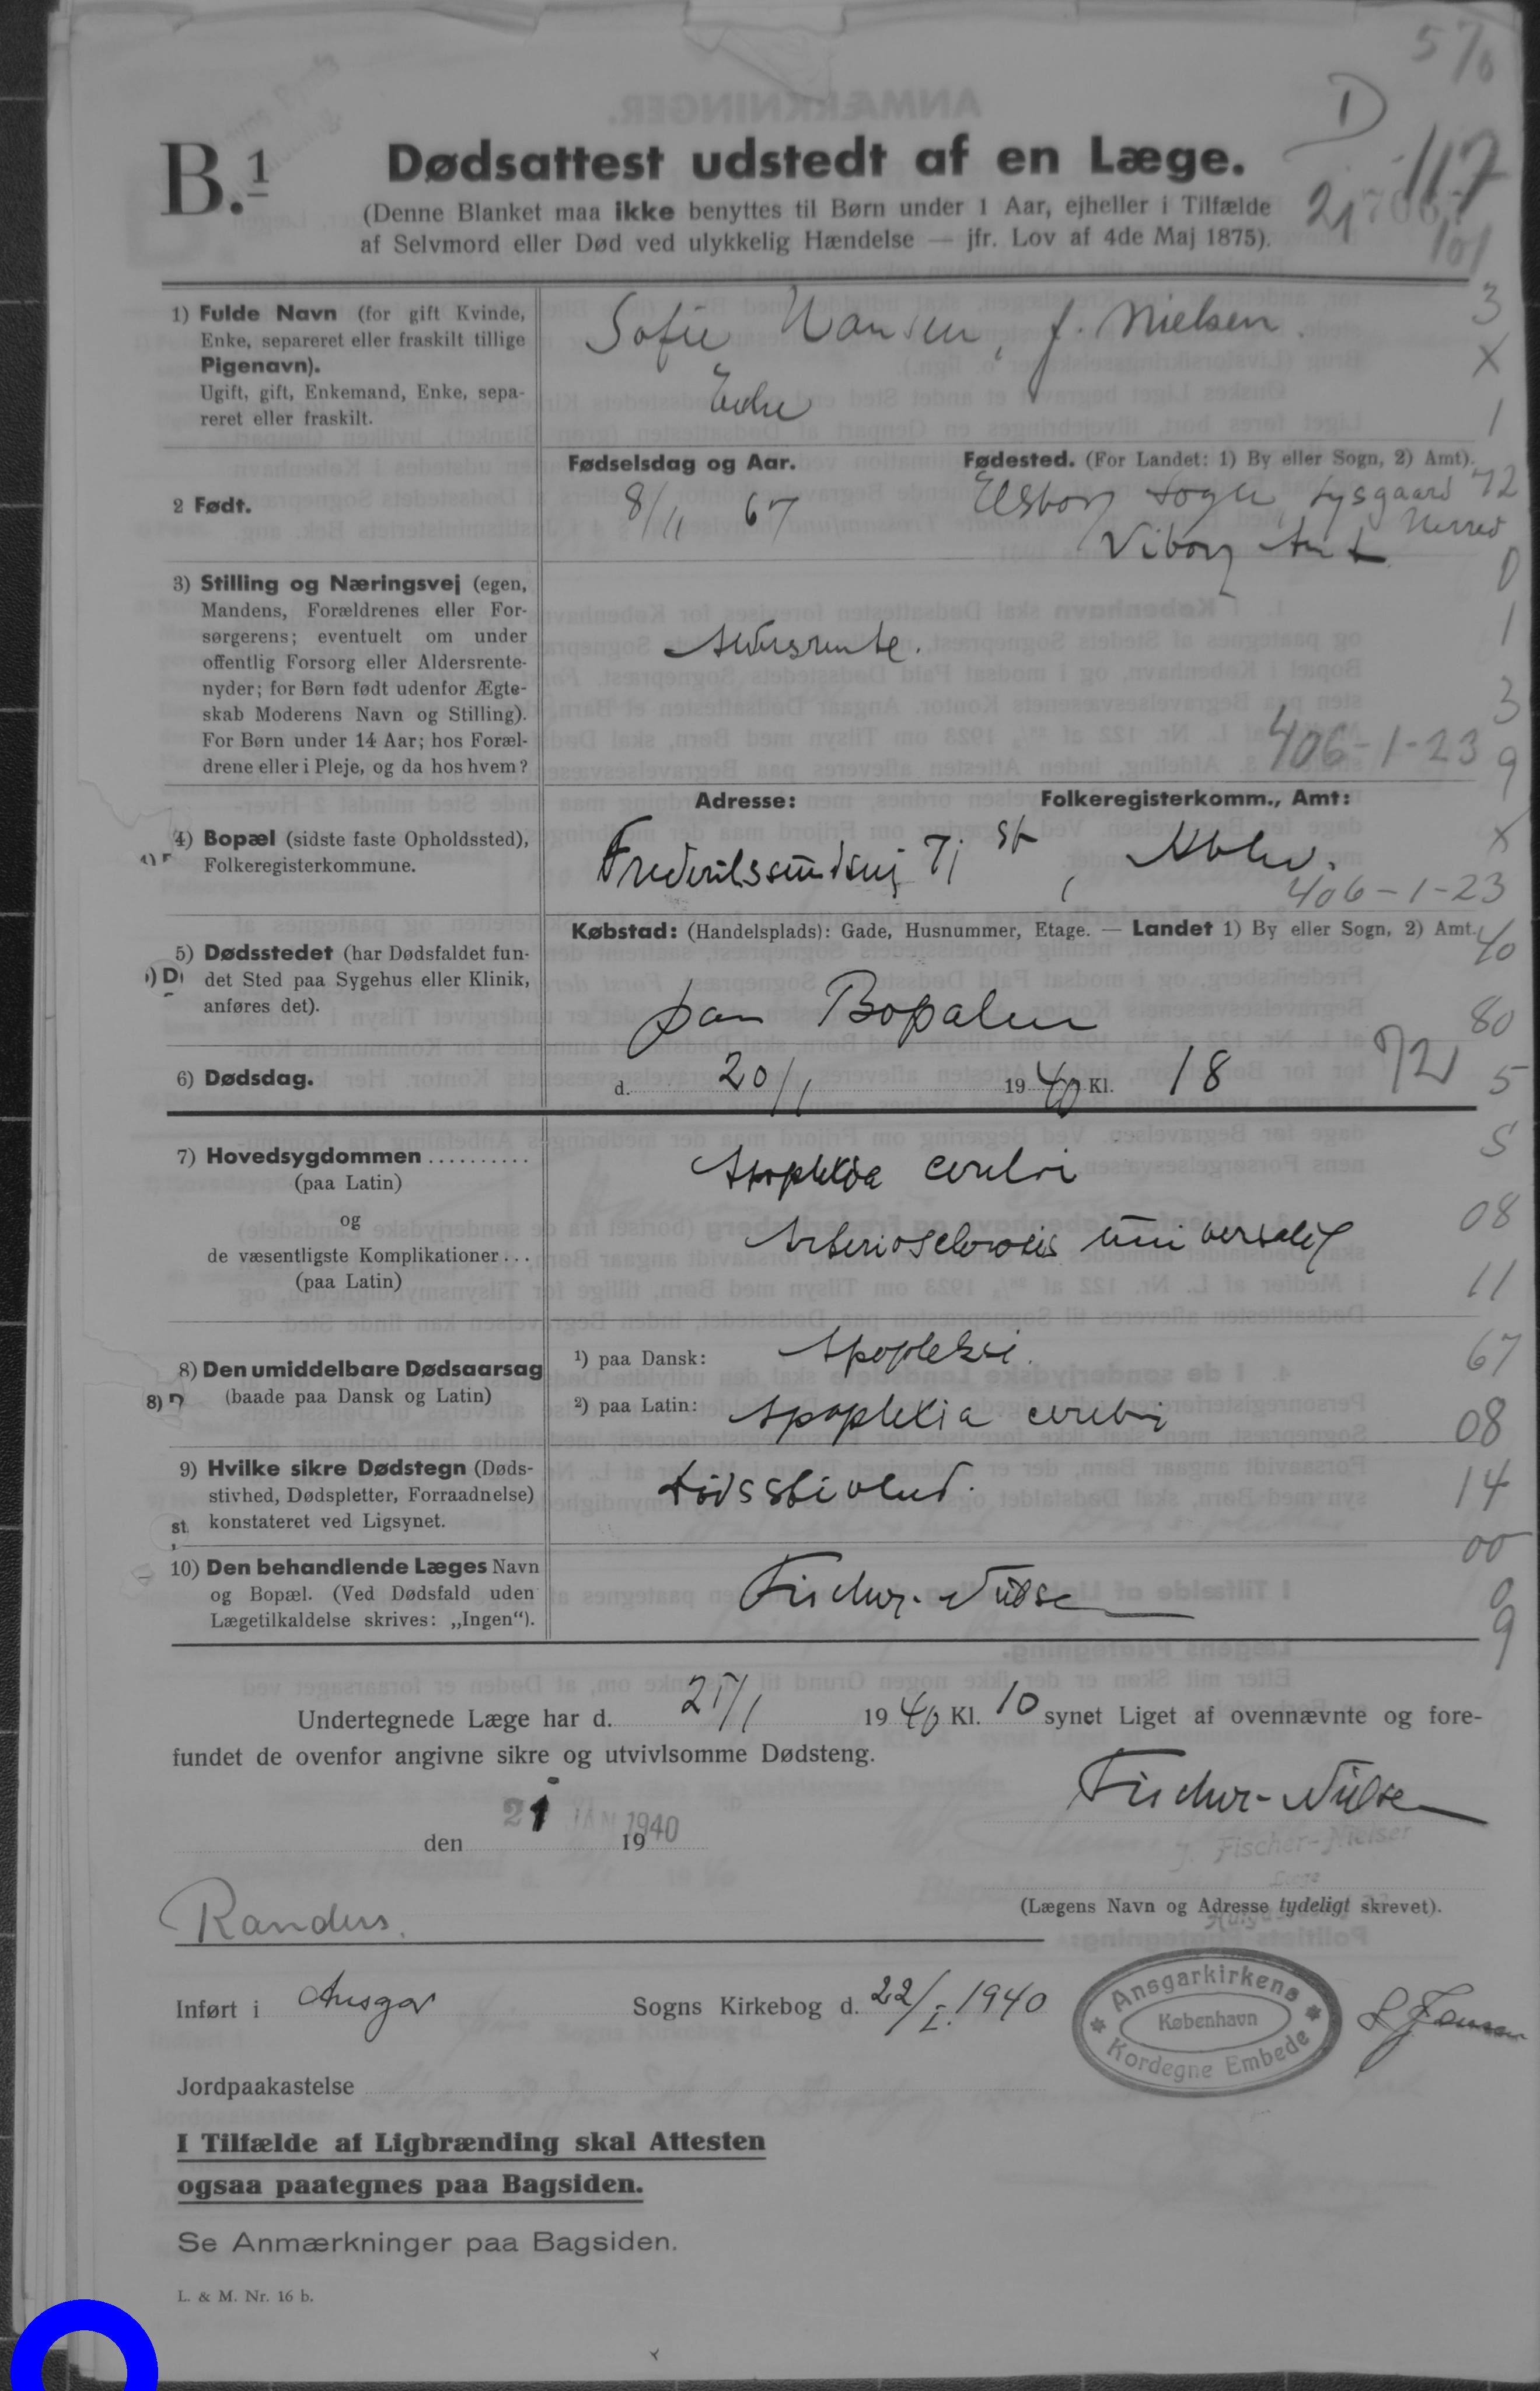 5/6
D
B.1
Dødsattest udstedt af en Læge.
117
(Denne Blanket maa ikke benyttes til Børn under 1 Aar, ejheller i Tilfælde
21
af Selvmord eller Død ved ulykkelig Hændelse — jfr. Lov af 4de Maj 1875).
101
1) Fulde Navn (for gift Kvinde,
Enke, separeret eller fraskilt tillige
Pigenavn).
Ugift, gift, Enkemand, Enke, sepa-
reret eller fraskilt.
Sofie Hansen, f. Nielsen.
Enke
3
X
1
Fødselsdag og Aar.
Fødested. (For Landet: 1) By eller Sogn, 2) Amt).
2 Født.
8/11 67
Elsborg Sogn, Lysgaard
Herred
Viborg Amt
72
0
3) Stilling og Næringsvej (egen,
Mandens, Forældrenes eller For-
sørgerens; eventuelt om under
offentlig Forsorg eller Aldersrente-
nyder; for Børn født udenfor Ægte-
skab Moderens Navn og Stilling).
For Børn under 14 Aar; hos Foræl-
drene eller i Pleje, og da hos hvem?
Aldersrente.
1
3
406-1-23
9
Adresse:
Folkeregisterkomm., Amt:
4) Bopæl (sidste faste Opholdssted),
Folkeregisterkommune.
Frederikssundsvej 71 st
Kbhv.
x
406-1-23
Købstad: (Handelsplads): Gade, Husnummer, Etage. — Landet 1) By eller Sogn, 2) Amt.
40
5) Dødsstedet (har Dødsfaldet fun-
det Sted paa Sygehus eller Klinik,
anføres det).
paa Bopælen
80
6) Dødsdag.
d. 20/1 1940 Kl. 18
72
5
7) Hovedsygdommen..........
(paa Latin)
og
de væsentligste Komplikationer...
(paa Latin)
Apoplexia cerebri
Arteriosclerosis universalis
5
08
11
8) Den umiddelbare Dødsaarsag
(baade paa Dansk og Latin)
1) paa Dansk: Apopleksi.
2) paa Latin: Apoplexia cerebri
67
08
9) Hvilke sikre Dødstegn (Døds-
stivhed, Dødspletter, Forraadnelse)
konstateret ved Ligsynet.
Dødsstivhed.
14
00
10) Den behandlende Læges Navn
og Bopæl. (Ved Dødsfald uden
Lægetilkaldelse skrives: „Ingen“).
Fischer-Nielsen
0
9
Undertegnede Læge har d. 21/1 1940 Kl. 10 synet Liget af ovennævnte og fore-
fundet de ovenfor angivne sikre og utvivlsomme Dødsteng.
Fischer-Nielsen
den 21 JAN 1940
19
J. Fischer-Nielsen
Læge
(Lægens Navn og Adresse tydeligt skrevet).
Randers.
Inført i Ansgar Sogns Kirkebog d. 22/I. 1940
Ansgarkirkens
København
Kordegne Embede
Jordpaakastelse
I Tilfælde af Ligbrænding skal Attesten
ogsaa paategnes paa Bagsiden.
Se Anmærkninger paa Bagsiden.
L. & M. Nr. 16 b.